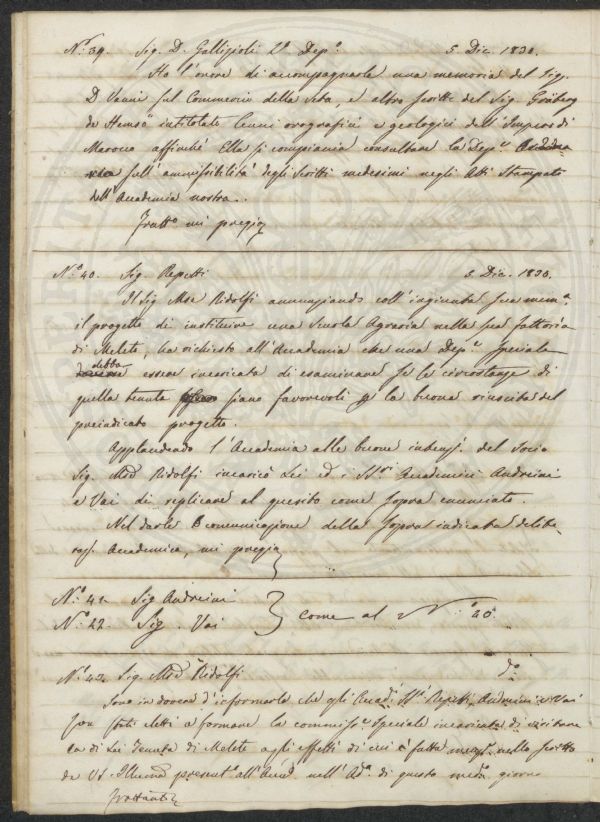 N.º 39. Sig. D. Gallizioli 2º Dep.º 5 Dic. 1830.
Ho l'onore di accompagnarle una memoria del Sig.
D Vanni sul Commercio della seta, e altro scritto del Sig. Gräberg
de Hemsö intitolato Cenni orografici e geologici dell'Impero di
Marocco affinché Ella si compiaccia consultare la Dep.e
sull'ammissibilità degli scritti medesimi negli Atti Stampati
dell'Accademia nostra.
Fratt.o mi pregio
N.º 40. Sig. Repetti 5 Dic. 1830.
Il Sig Mse Ridolfi annunziando coll'ingiunta sua mem.a
il progetto di instituire una Scuola Agraria nella sua fattoria
di Meleto, ha richiesto all'Accademia che una Dep.e Speciale
debba essere incaricata di esaminare se le circostanze di
quella tenuta siano favorevoli p la buona riuscita del
preindicato progetto.
Applaudendo l'Accademia alle buone intenz.i del Socio
Sig. Mse Ridolfi incaricò Lei ed i SS.ri Accademici Andreini
e Vai di replicare al quesito come sopra enunciato.
Nel darle comunicazione della sopra indicata delibe-
raz. Accademica, mi pregio
N.º 41. Sig Andreini
N.º 42. Sig. Vai } come al N.º 40.
N.º 43. Sig. Mse Ridolfi dº
Sono in dovere d'informarla che gli Accad.i SS.ri Repetti, Andreini e Vai
son stati eletti a formare la commiss.e Speciale incaricata di visitare
la di Lei Tenuta di Meleto agli effetti di cui è fatta nello scritto
da VS. Illma present.o all'Accad. nell'Ad.a di questo med.o giorno
Frattanto